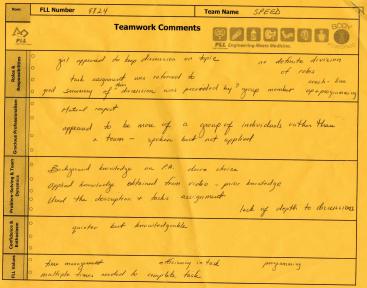 Room FLL Number 9824 Team Name SPEED
FLL Teamwork Comments BODY FORWARD
FLL Engineering Meets Medicine.
Roles & Responsibilities
girl appeared to keep discussion on topic no definite division of roles
task assignment was referred to
good summary of discussion was proceeded by group member programming
Gracious Professionalism
Mutual respect
appeared to be more of a group of individuals rather than
a team - spoken but not applied
Problem-Solving & Team Dynamics
Background knowledge on
Applied knowledge obtained from video - prior knowledge
Used the description & tasks assignment
lack of depth to discussions
Confidence & Enthusiasm
quieter but knowledgable
FLL Values
time management efficiency in task programming
multiple times needed to complete task